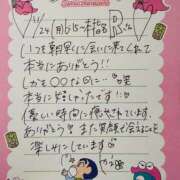 11/24(月)6:15~本指名
いつも朝早くに会いに来てくれて
本当にありがとう!!
しかも〇〇なのに…笑
本当に嬉しかったです!!
優しい時間に癒やされています
ありがとう!また笑顔で会えることを
楽しみにしています